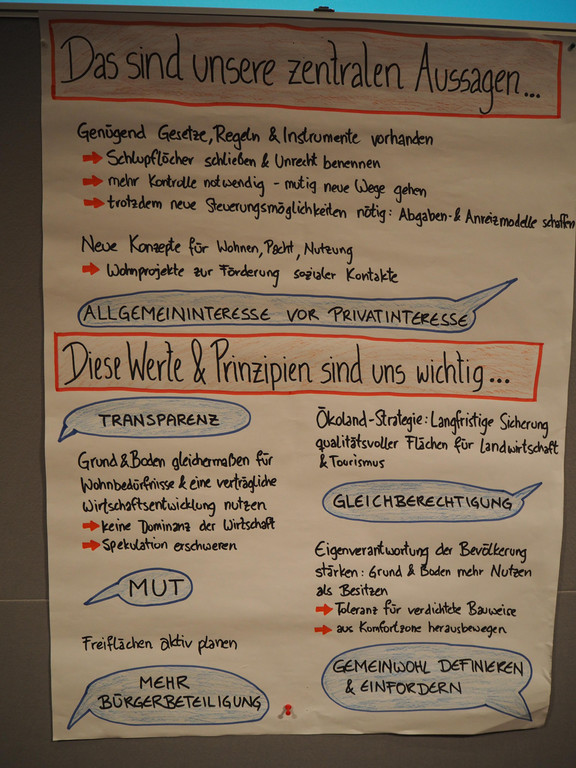 Das sind unsere zentralen Aussagen...
Genügend Gesetze, Regeln & Instrumente vorhanden
➡ Schlupflöcher schließen & Unrecht benennen
➡ mehr Kontrolle notwendig - mutig neue Wege gehen
➡ trotzdem neue Steuerungsmöglichkeiten nötig: Abgaben- & Anreizmodelle schaffen
Neue Konzepte für Wohnen, Pacht, Nutzung
➡ Wohnprojekte zur Förderung sozialer Kontakte
ALLGEMEININTERESSE VOR PRIVATINTERESSE
Diese Werte & Prinzipien sind uns wichtig...
TRANSPARENZ
Grund & Boden gleichermaßen für
Wohnbedürfnisse & eine verträgliche
Wirtschaftsentwicklung nutzen
➡ keine Dominanz der Wirtschaft
➡ Spekulation erschweren
MUT
Freiflächen aktiv planen
MEHR
BÜRGERBETEILIGUNG
Ökoland-Strategie: Langfristige Sicherung
qualitätsvoller Flächen für Landwirtschaft
& Tourismus
GLEICHBERECHTIGUNG
Eigenverantwortung der Bevölkerung
stärken: Grund & Boden mehr Nutzen
als Besitzen
➡ Toleranz für verdichtete Bauweise
➡ aus Komfortzone herausbewegen
GEMEINWOHL DEFINIEREN
& EINFORDERN